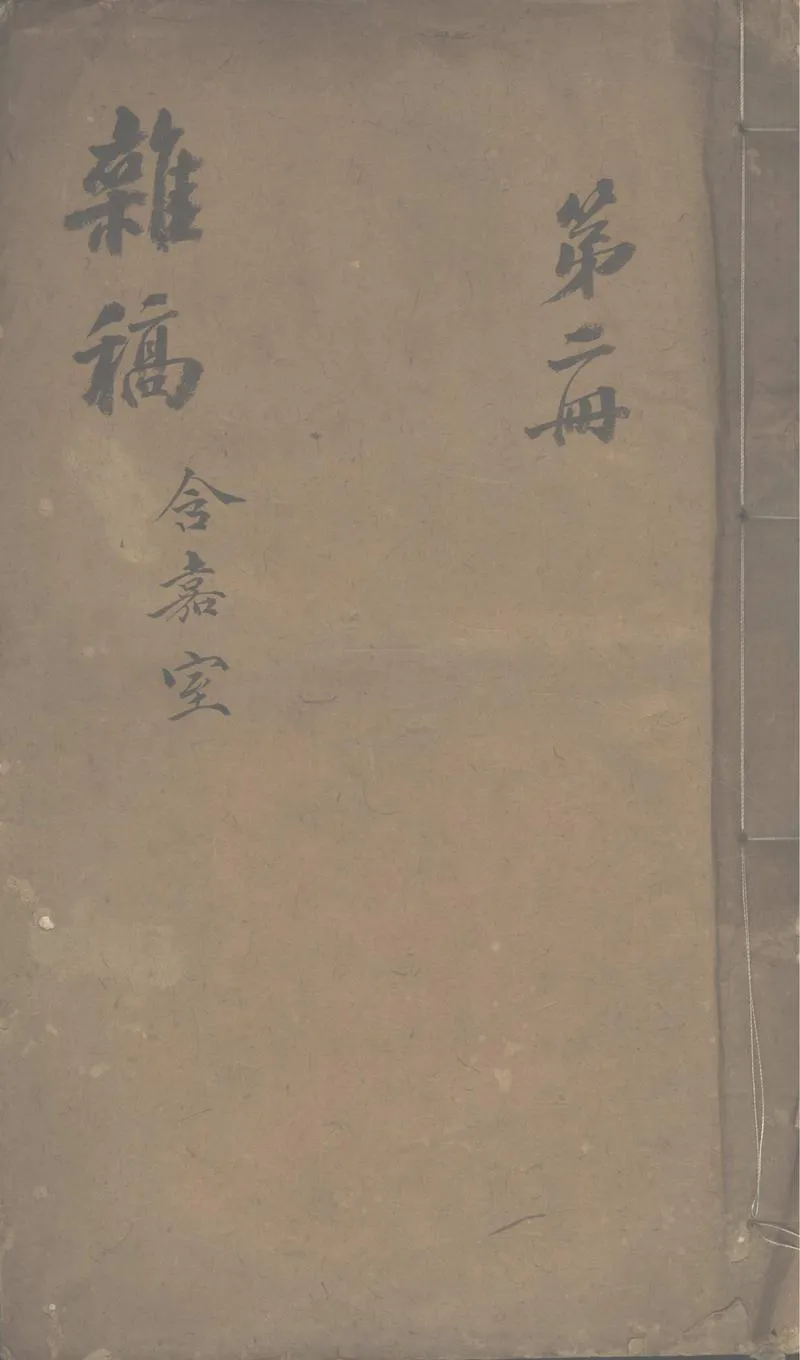 第二冊
雜稿
含嘉室